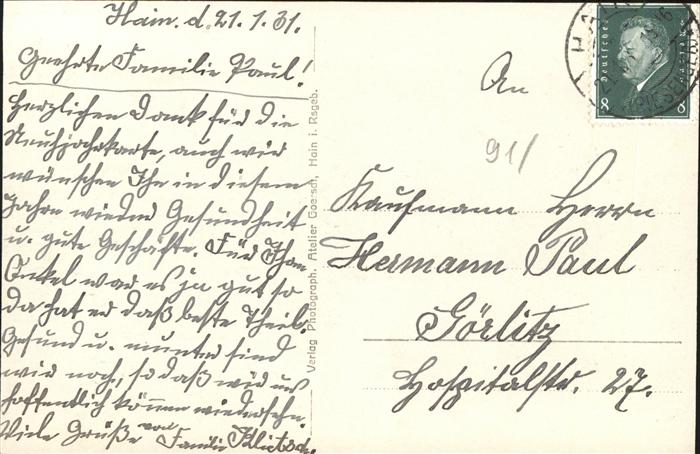 Hain. d. 21.1.31.
Geehrte Familie Paul!
Herzlichen Dank für die
Neuhjahrkarte, auch wir
wünschen Ihn in diesem
Jahre wieder Gesundheit
u. gute Geschäfte. Für Ihren
Onkel war es ja gut so
da hat er daß beste Theil.
Gesund u. munter sind
wir noch, so daß wir uns
hoffentlich können wiedersehn.
Viele Grüße von Familie Klietsch.
Verlag Photograph. Atelier Goersch, Hain i. Rsgeb.
An
91/
Kaufmann Herrn
Hermann Paul
Görlitz
Hospitalstr. 27.
Deutsches Reich
8 8
HAIN
(RIESENGEB)